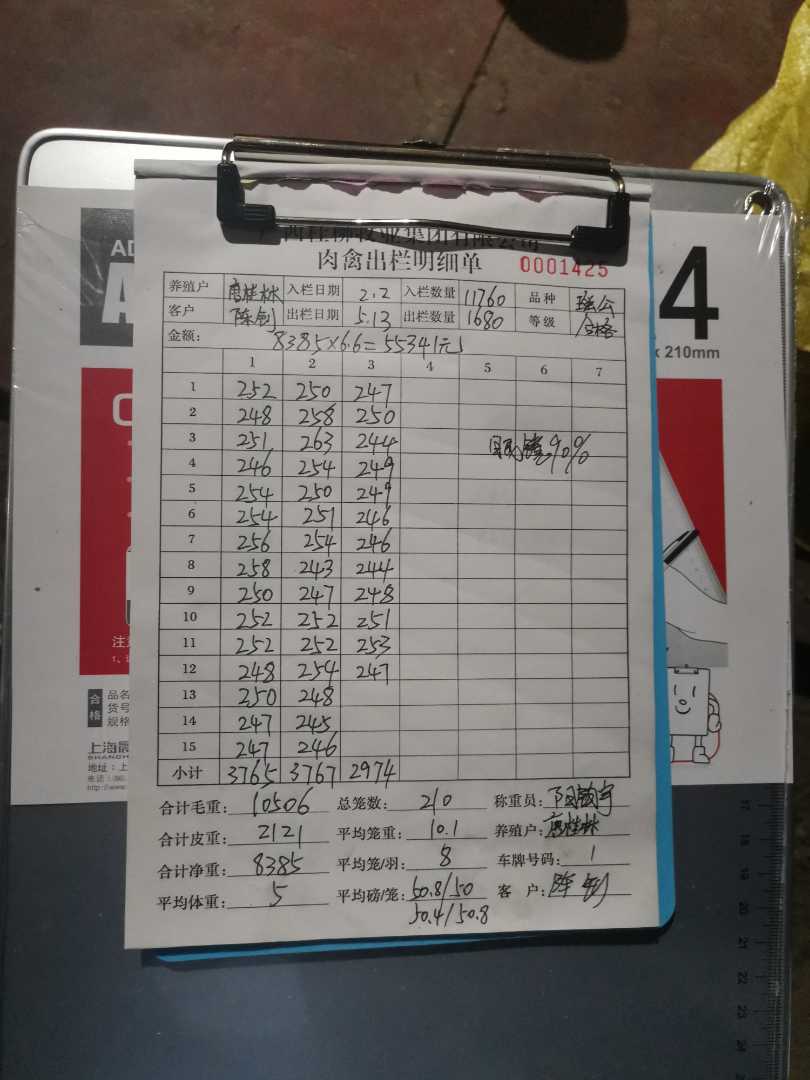 肉禽出栏明细单 0001425
养殖户 唐桂林 入栏日期 2.2 入栏数量 11760 品种
客户 陈剑 出栏日期 5.13 出栏数量 1680 等级 合格
金额: 8385×6.6=55341元
1 2 3 4 5 6 7
1 252 250 247
2 248 258 250
3 251 263 244
4 246 254 249 90%
5 254 250 249
6 254 251 246
7 256 254 246
8 258 243 244
9 250 247 248
10 252 252 251
11 252 252 253
12 248 254 247
13 250 248
14 247 245
15 247 246
小计 3765 3767 2974
合计毛重: 10506 总笼数: 210 称重员:
合计皮重: 2121 平均笼重: 10.1 养殖户: 唐桂林
合计净重: 8385 平均笼/羽: 8 车牌号码: 1
平均体重: 5 平均磅/笼: 50.8/50 客 户: 陈剑
50.4/50.8
AD
A
4
x 210mm
C
注
1、
合格
品名
货号
规格
上海晨
SHANGH
地址：上
http://www.
17
18
19
20
21
22
23
24